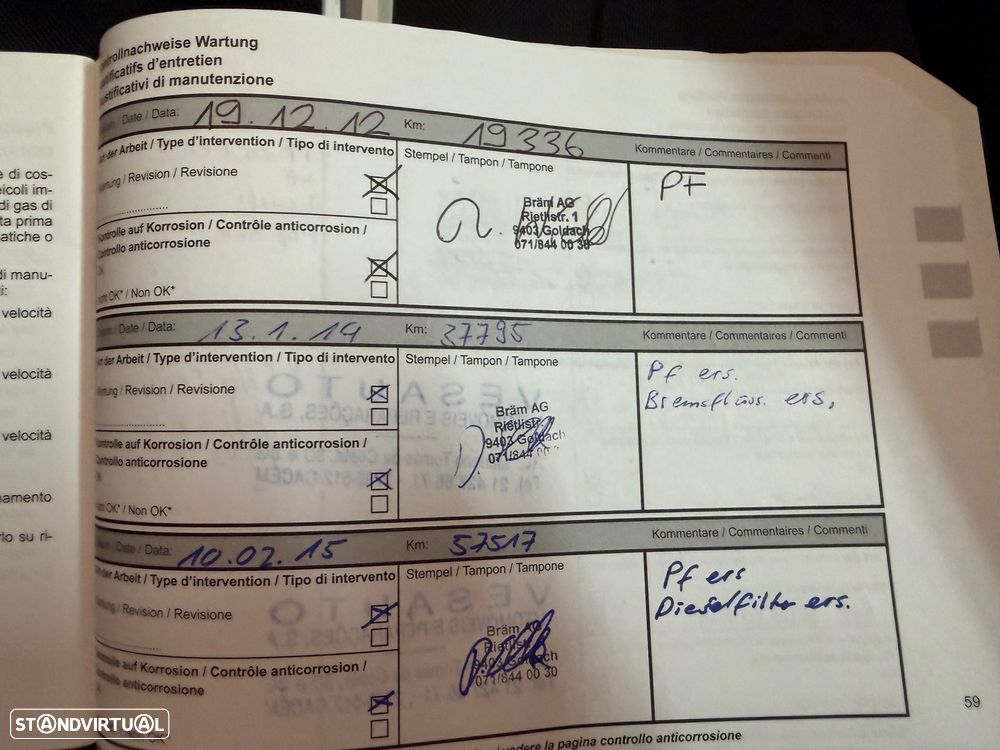 trollnachweise Wartung
ificatifs d'entretien
ustificativi di manutenzione
/ Date / Data: 19.12.12 Km: 19336 Kommentare / Commentaires / Commenti
der Arbeit / Type d'intervention / Tipo di intervento
Stempel / Tampon / Tampone
/ Revision / Revisione
PF
Bräm AG
Rietlistr. 1
9403 Goldach
071/844 00 30
Kontrolle auf Korrosion / Contrôle anticorrosion /
Controllo anticorrosione
OK
OK* / Non OK*
/ Date / Data: 13.1.14 Km: 37795 Kommentare / Commentaires / Commenti
der Arbeit / Type d'intervention / Tipo di intervento
Stempel / Tampon / Tampone
/ Revision / Revisione
Pf ers.
Bremsflüss. ers.
Bräm AG
Rietlistr.
9403 Goldach
071/844 00
Kontrolle auf Korrosion / Contrôle anticorrosion /
Controllo anticorrosione
OK* / Non OK*
/ Date / Data: 10.02.15 Km: 57517 Kommentare / Commentaires / Commenti
der Arbeit / Type d'intervention / Tipo di intervento
Stempel / Tampon / Tampone
/ Revision / Revisione
Pf ers
Dieselfilter ers.
Bräm AG
Rietlistr.
9403 Goldach
071/844 00 30
auf Korrosion / Contrôle anticorrosion /
anticorrosione
OK
la pagina controllo anticorrosione
59
e di cos-
eicoli im-
di gas di
ta prima
atiche o
di manu-
i:
velocità
velocità
velocità
namento
rlo su ri-
STANDVIRTUAL